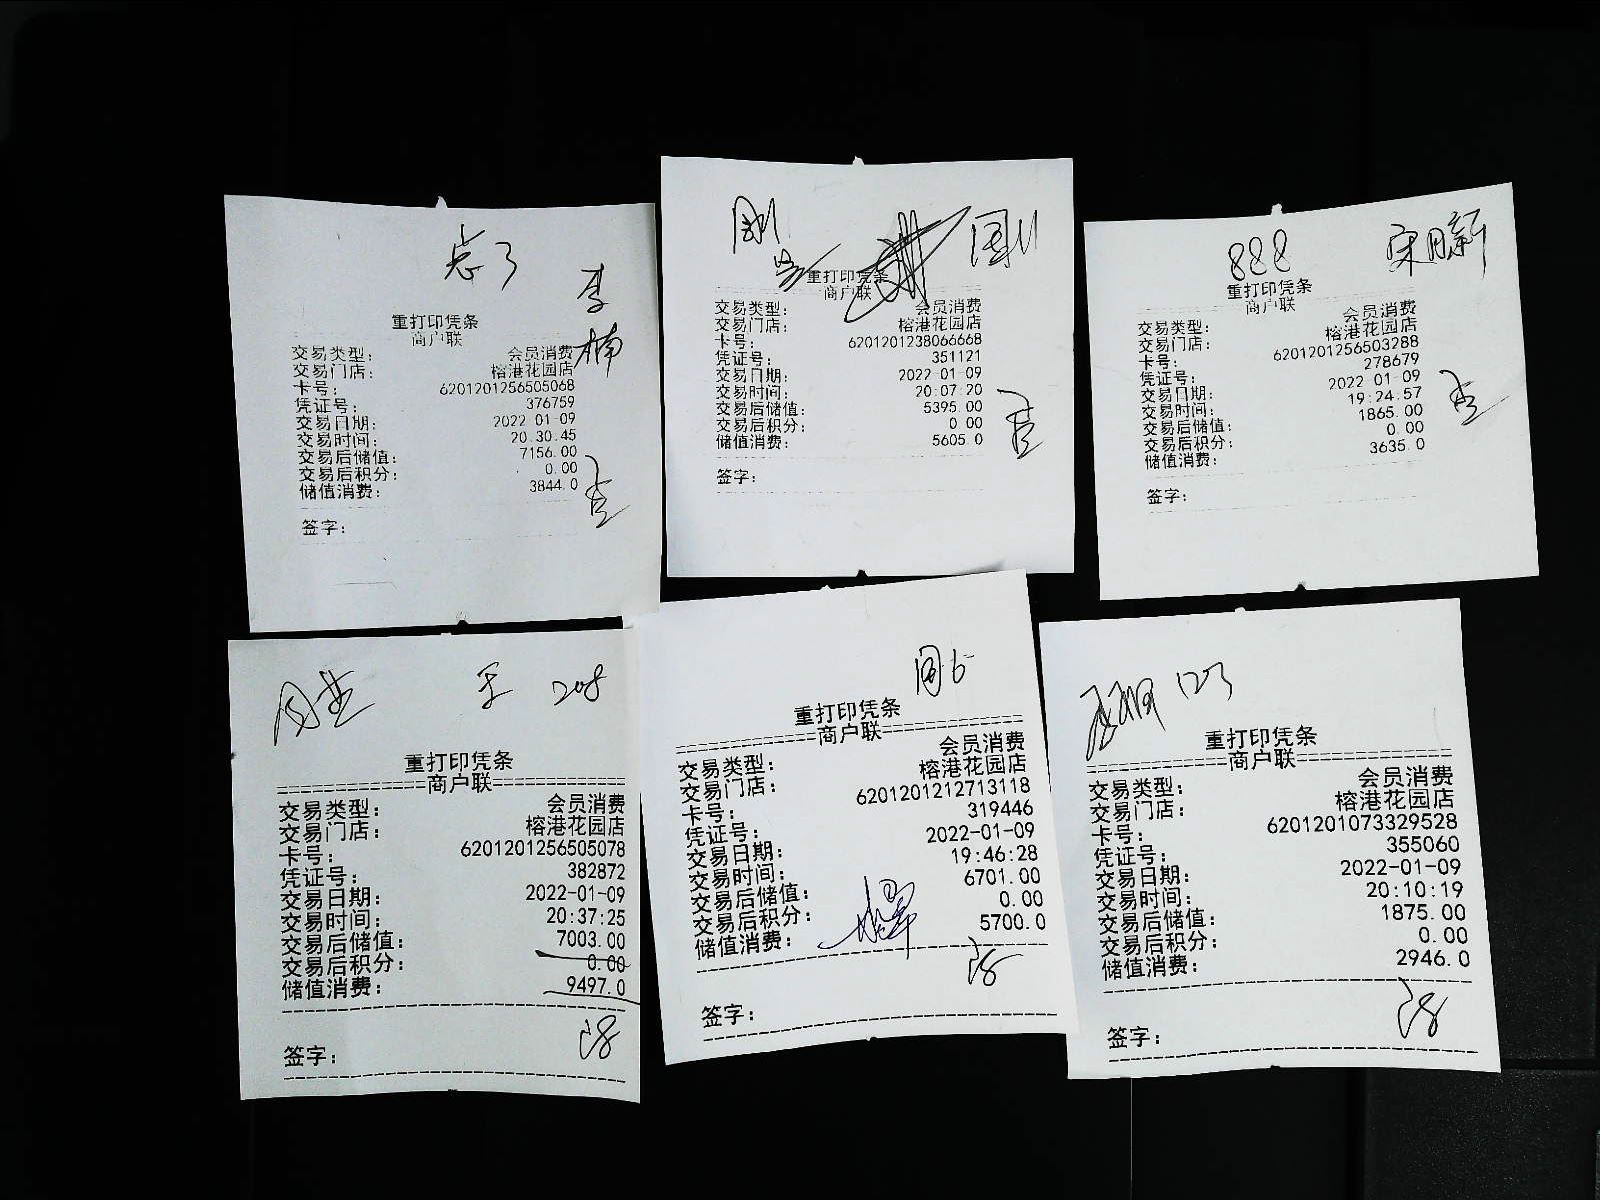 总了
李
楠
重打印凭条
商户联
交易类型: 会员消费
交易门店: 榕港花园店
卡号: 6201201256505068
凭证号: 376759
交易日期: 2022-01-09
交易时间: 20:30:45
交易后储值: 7156.00
交易后积分: 0.00
储值消费: 3844.0
签字:
重打印凭条
商户联
交易类型: 会员消费
交易门店: 榕港花园店
卡号: 6201201238066668
凭证号: 351121
交易日期: 2022-01-09
交易时间: 20:07:20
交易后储值: 5395.00
交易后积分: 0.00
储值消费: 5605.0
签字:
888 宋月新
重打印凭条
商户联
交易类型: 会员消费
交易门店: 榕港花园店
卡号: 6201201256503288
凭证号: 278679
交易日期: 2022-01-09
交易时间: 19:24:57
交易后储值: 1865.00
交易后积分: 0.00
储值消费: 3635.0
签字:
208
重打印凭条
==========商户联==========
交易类型: 会员消费
交易门店: 榕港花园店
卡号: 6201201256505078
凭证号: 382872
交易日期: 2022-01-09
交易时间: 20:37:25
交易后储值: 7003.00
交易后积分: 0.00
储值消费: 9497.0
签字:
重打印凭条
==========商户联==========
交易类型: 会员消费
交易门店: 榕港花园店
卡号: 6201201212713118
凭证号: 319446
交易日期: 2022-01-09
交易时间: 19:46:28
交易后储值: 6701.00
交易后积分: 0.00
储值消费: 5700.0
签字:
123
重打印凭条
==========商户联==========
交易类型: 会员消费
交易门店: 榕港花园店
卡号: 6201201073329528
凭证号: 355060
交易日期: 2022-01-09
交易时间: 20:10:19
交易后储值: 1875.00
交易后积分: 0.00
储值消费: 2946.0
签字: